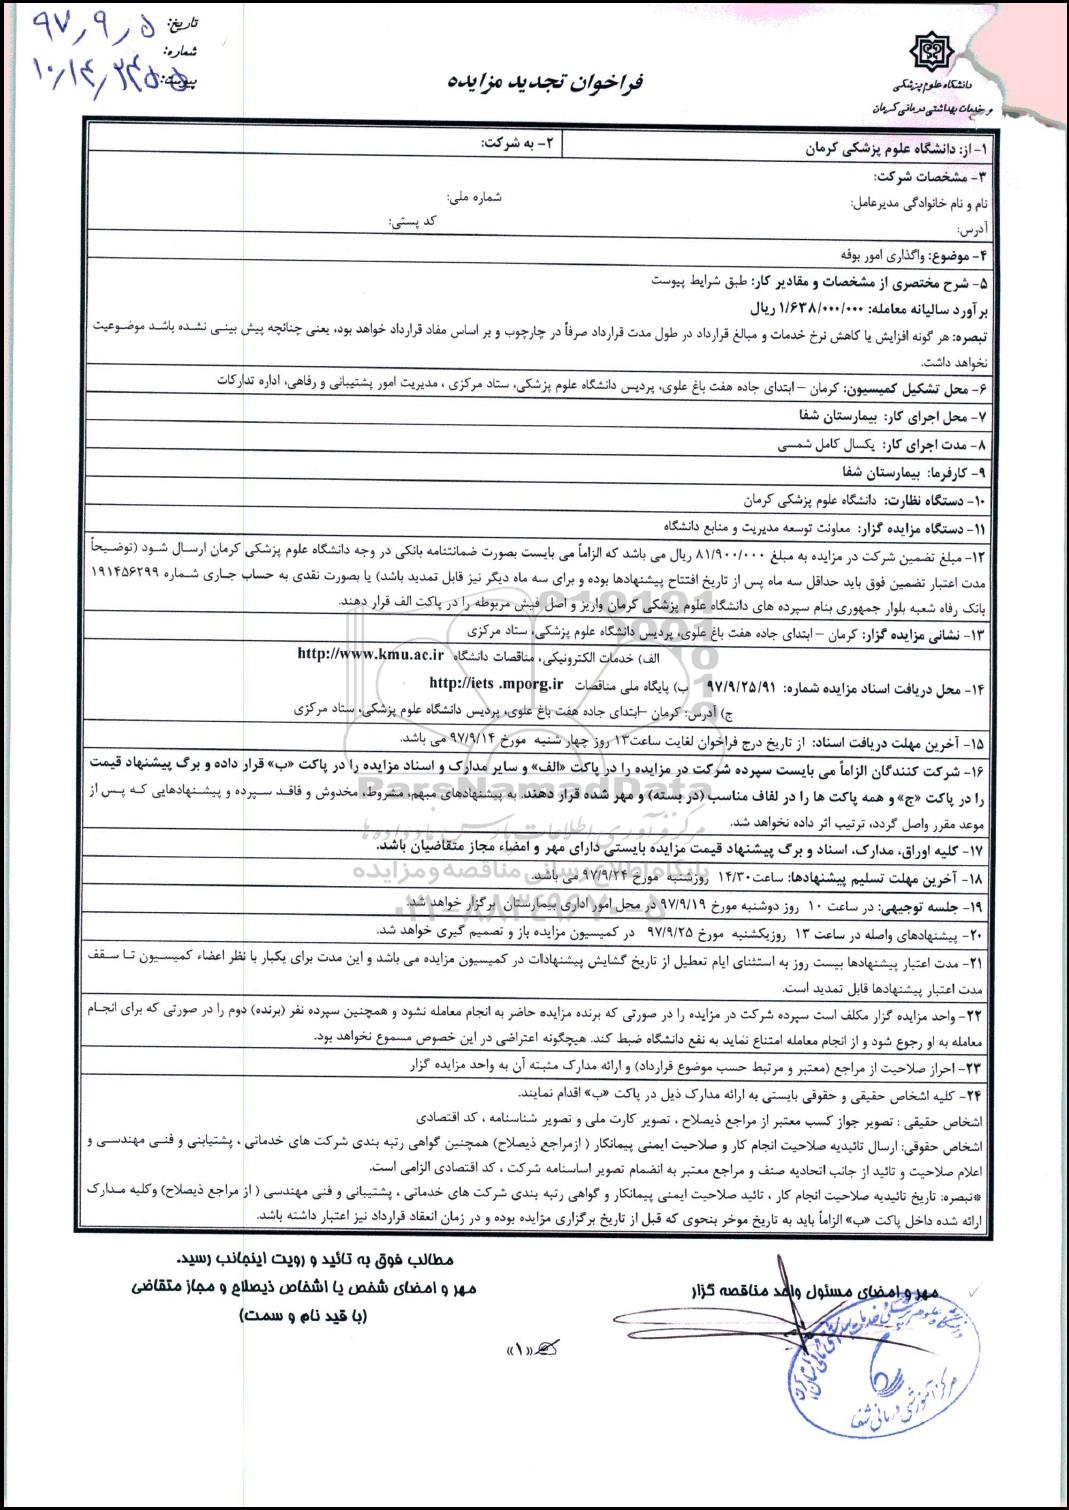 تاریخ: ۹۷٫۹٫۵
شماره:
پیوست:
دانشگاه علوم پزشکی
و خدمات بهداشتی درمانی کرمان
فراخوان تجدید مزایده
۱- از: دانشگاه علوم پزشکی کرمان
۲- به شرکت:
۳- مشخصات شرکت:
نام و نام خانوادگی مدیرعامل: شماره ملی:
آدرس: کد پستی:
۴- موضوع: واگذاری امور بوفه
۵- شرح مختصری از مشخصات و مقادیر کار: طبق شرایط پیوست
برآورد سالیانه معامله: ۱/۶۳۸/۰۰۰/۰۰۰ ریال
تبصره: هر گونه افزایش یا کاهش نرخ خدمات و مبالغ قرارداد در طول مدت قرارداد صرفاً در چارچوب و بر اساس مفاد قرارداد خواهد بود، یعنی چنانچه پیش بینی نشده باشد موضوعیت
نخواهد داشت.
۶- محل تشکیل کمیسیون: کرمان –ابتدای جاده هفت باغ علوی، پردیس دانشگاه علوم پزشکی، ستاد مرکزی ، مدیریت امور پشتیبانی و رفاهی، اداره تدارکات
۷- محل اجرای کار: بیمارستان شفا
۸- مدت اجرای کار: یکسال کامل شمسی
۹- کارفرما: بیمارستان شفا
۱۰- دستگاه نظارت: دانشگاه علوم پزشکی کرمان
۱۱- دستگاه مزایده گزار: معاونت توسعه مدیریت و منابع دانشگاه
۱۲- مبلغ تضمین شرکت در مزایده به مبلغ ۸۱/۹۰۰/۰۰۰ ریال می باشد که الزاماً می بایست بصورت ضمانتنامه بانکی در وجه دانشگاه علوم پزشکی کرمان ارسال شود (توضیحاً
مدت اعتبار تضمین فوق باید حداقل سه ماه پس از تاریخ افتتاح پیشنهادها بوده و برای سه ماه دیگر نیز قابل تمدید باشد) یا بصورت نقدی به حساب جاری شماره ۱۹۱۴۵۶۲۹۹
بانک رفاه شعبه بلوار جمهوری بنام سپرده های دانشگاه علوم پزشکی کرمان واریز و اصل فیش مربوطه را در پاکت الف قرار دهند.
۱۳- نشانی مزایده گزار: کرمان –ابتدای جاده هفت باغ علوی، پردیس دانشگاه علوم پزشکی، ستاد مرکزی
الف) خدمات الکترونیکی، مناقصات دانشگاه http://www.kmu.ac.ir
۱۴- محل دریافت اسناد مزایده شماره: ۹۷/۹/۲۵/۹۱ ب) پایگاه ملی مناقصات http://iets .mporg.ir
ج) آدرس: کرمان –ابتدای جاده هفت باغ علوی، پردیس دانشگاه علوم پزشکی، ستاد مرکزی
۱۵- آخرین مهلت دریافت اسناد: از تاریخ درج فراخوان لغایت ساعت۱۳ روز چهار شنبه مورخ ۹۷/۹/۱۴ می باشد.
۱۶- شرکت کنندگان الزاماً می بایست سپرده شرکت در مزایده را در پاکت «الف» و سایر مدارک و اسناد مزایده را در پاکت «ب» قرار داده و برگ پیشنهاد قیمت
را در پاکت «ج» و همه پاکت ها را در لفاف مناسب (در بسته) و مهر شده قرار دهند. به پیشنهادهای مبهم، مشروط، مخدوش و فاقد سپرده و پیشنهادهایی که پس از
موعد مقرر واصل گردد، ترتیب اثر داده نخواهد شد.
۱۷- کلیه اوراق، مدارک، اسناد و برگ پیشنهاد قیمت مزایده بایستی دارای مهر و امضاء مجاز متقاضیان باشد.
۱۸- آخرین مهلت تسلیم پیشنهادها: ساعت ۱۴/۳۰ روزشنبه مورخ ۹۷/۹/۲۴ می باشد.
۱۹- جلسه توجیهی: در ساعت ۱۰ روز دوشنبه مورخ ۹۷/۹/۱۹ در محل امور اداری بیمارستان برگزار خواهد شد.
۲۰- پیشنهادهای واصله در ساعت ۱۳ روزیکشنبه مورخ ۹۷/۹/۲۵ در کمیسیون مزایده باز و تصمیم گیری خواهد شد.
۲۱- مدت اعتبار پیشنهادها بیست روز به استثنای ایام تعطیل از تاریخ گشایش پیشنهادات در کمیسیون مزایده می باشد و این مدت برای یکبار با نظر اعضاء کمیسیون تا سقف
مدت اعتبار پیشنهادها قابل تمدید است.
۲۲- واحد مزایده گزار مکلف است سپرده شرکت در مزایده را در صورتی که برنده مزایده حاضر به انجام معامله نشود و همچنین سپرده نفر (برنده) دوم را در صورتی که برای انجام
معامله به او رجوع شود و از انجام معامله امتناع نماید به نفع دانشگاه ضبط کند. هیچگونه اعتراضی در این خصوص مسموع نخواهد بود.
۲۳- احراز صلاحیت از مراجع (معتبر و مرتبط حسب موضوع قرارداد) و ارائه مدارک مثبته آن به واحد مزایده گزار
۲۴- کلیه اشخاص حقیقی و حقوقی بایستی به ارائه مدارک ذیل در پاکت «ب» اقدام نمایند.
اشخاص حقیقی : تصویر جواز کسب معتبر از مراجع ذیصلاح ، تصویر کارت ملی و تصویر شناسنامه ، کد اقتصادی
اشخاص حقوقی: ارسال تائیدیه صلاحیت انجام کار و صلاحیت ایمنی پیمانکار ( ازمراجع ذیصلاح) همچنین گواهی رتبه بندی شرکت های خدماتی ، پشتیبانی و فنی مهندسی و
اعلام صلاحیت و تائید از جانب اتحادیه صنف و مراجع معتبر به انضمام تصویر اساسنامه شرکت ، کد اقتصادی الزامی است.
*تبصره: تاریخ تائیدیه صلاحیت انجام کار ، تائید صلاحیت ایمنی پیمانکار و گواهی رتبه بندی شرکت های خدماتی ، پشتیبانی و فنی مهندسی ( از مراجع ذیصلاح) وکلیه مدارک
ارائه شده داخل پاکت «ب» الزاماً باید به تاریخ موخر بنحوی که قبل از تاریخ برگزاری مزایده بوده و در زمان انعقاد قرارداد نیز اعتبار داشته باشد.
مهر و امضای مسئول واحد مناقصه گزار
مطالب فوق به تائید و رویت اینجانب رسید.
مهر و امضای شخص یا اشخاص ذیصلاح و مجاز متقاضی
(با قید نام و سمت)
«۱»
مرکز آموزشی درمانی شفا
ParsNamadData
مرکز فرآوری اطلاعات پارس نماد داده ها
پایگاه اطلاع رسانی مناقصه و مزایده
۰۲۱-۸۸۳۴۹۶۷۰-۵